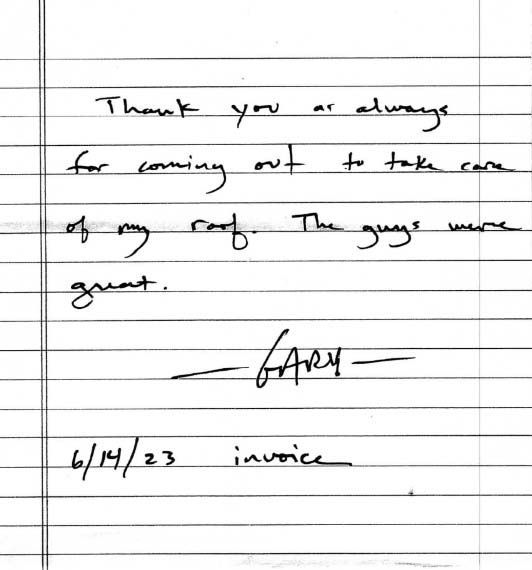 Thank you as always
for coming out to take care
of my roof. The guys were
great.
— GARY —
6/14/23 invoice